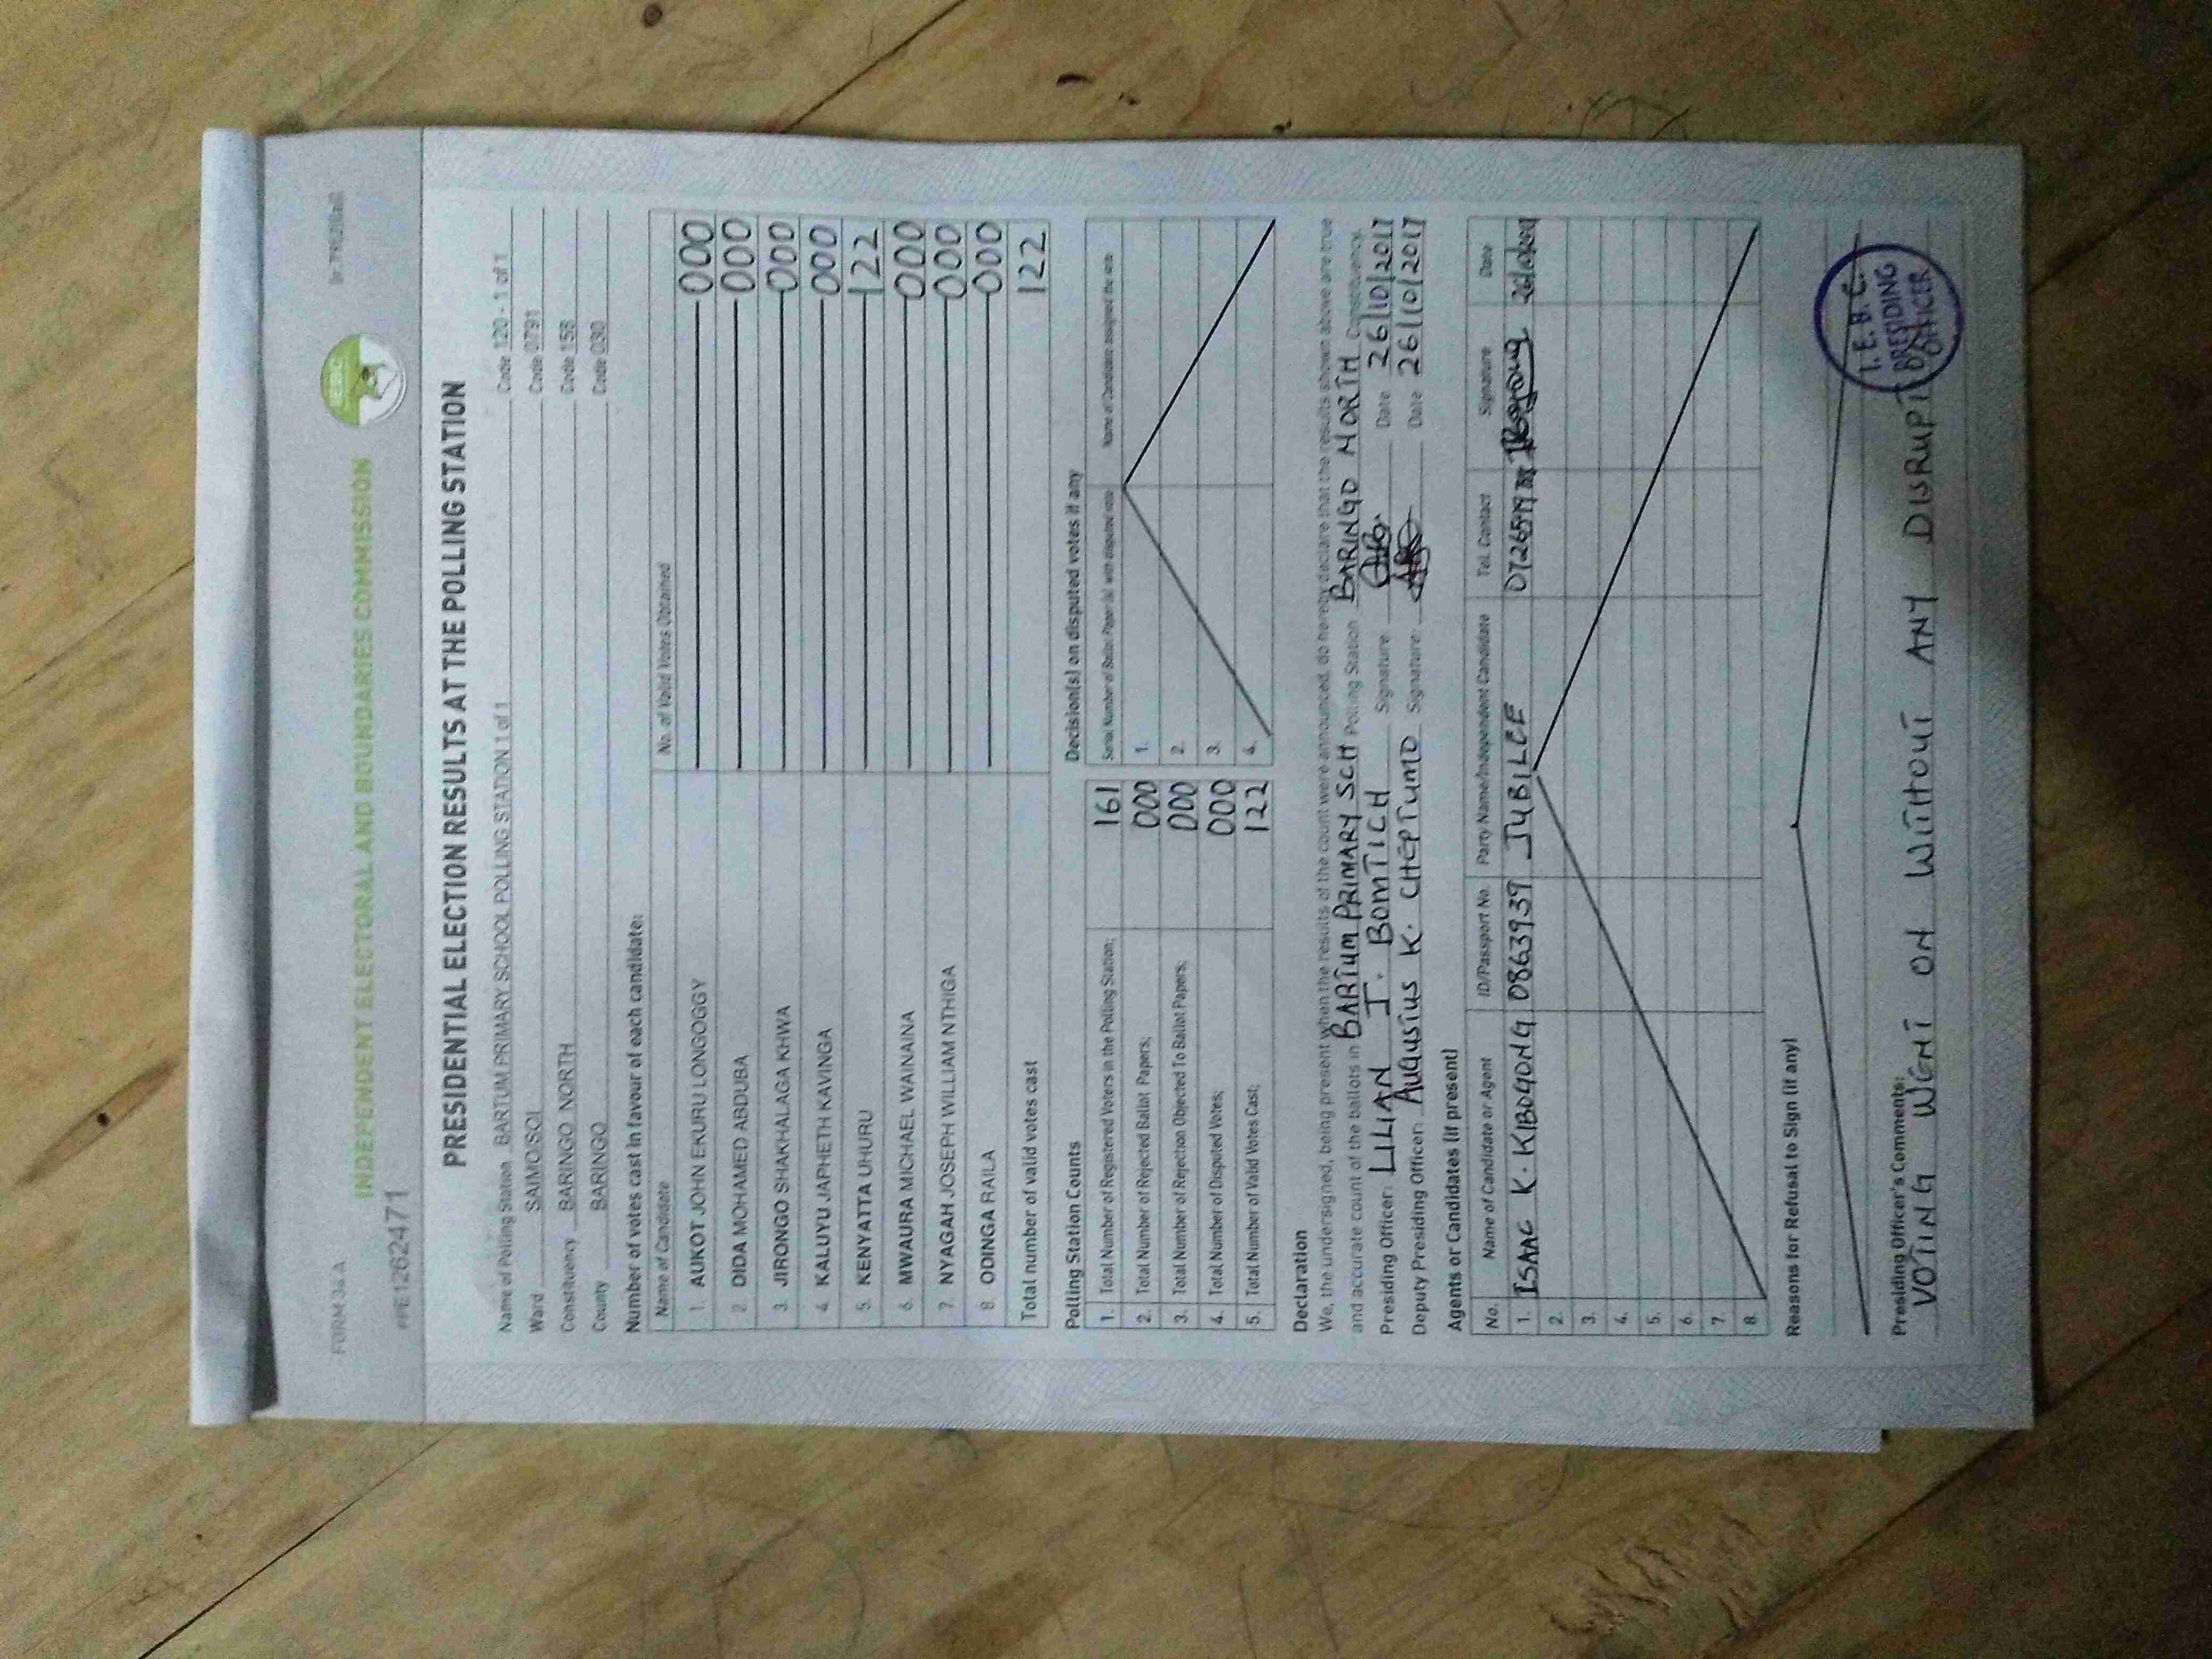 FORM 34 A
INDEPENDENT ELECTORAL AND BOUNDARIES COMMISSION
#PE1262471
PRESIDENTIAL ELECTION RESULTS AT THE POLLING STATION
Name of Polling Station BARTUM PRIMARY SCHOOL POLLING STATION 1 of 1 Code 120 - 1 of 1
Ward SAIMO/SOI Code 0791
Constituency BARINGO NORTH Code 158
County BARINGO Code 030
Number of votes cast in favour of each candidate:
Name of Candidate No. of Valid Votes Obtained
1. AUKOT JOHN EKURU LONGOGGY 000
2. DIDA MOHAMED ABDUBA 000
3. JIRONGO SHAKHALAGA KHWA 000
4. KALUYU JAPHETH KAVINGA 000
5. KENYATTA UHURU 122
6. MWAURA MICHAEL WAINAINA 000
7. NYAGAH JOSEPH WILLIAM NTHIGA 000
8. ODINGA RAILA 000
Total number of valid votes cast 122
Polling Station Counts Decision(s) on disputed votes if any
1. Total Number of Registered Voters in the Polling Station; 161
2. Total Number of Rejected Ballot Papers; 000
3. Total Number of Rejection Objected To Ballot Papers; 000
4. Total Number of Disputed Votes; 000
5. Total Number of Valid Votes Cast; 122
Serial Number of Ballot Paper(s) with disputed vote Name of Candidate assigned the vote
1.
2.
3.
4.
Declaration
We, the undersigned, being present when the results of the count were announced, do hereby declare that the results shown above are true
and accurate count of the ballots in BARTUM PRIMARY SCH Polling Station BARINGO NORTH Constituency.
Presiding Officer: LILIAN J. BOMTICH Signature Date 26/10/2017
Deputy Presiding Officer: AUGUSTUS K. CHEPTUMO Signature: Date 26/10/2017
Agents or Candidates (if present)
No. Name of Candidate or Agent ID/Passport No. Party Name/Independent Candidate Tel. Contact Signature Date
1. ISAAC K. KIBOGONG 0863939 JUBILEE
2.
3.
4.
5.
6.
7.
8.
Reasons for Refusal to Sign (if any)
Presiding Officer's Comments:
VOTING WENT ON WITHOUT ANY DISRUPTION
I. E. B. C.
PRESIDING
OFFICER